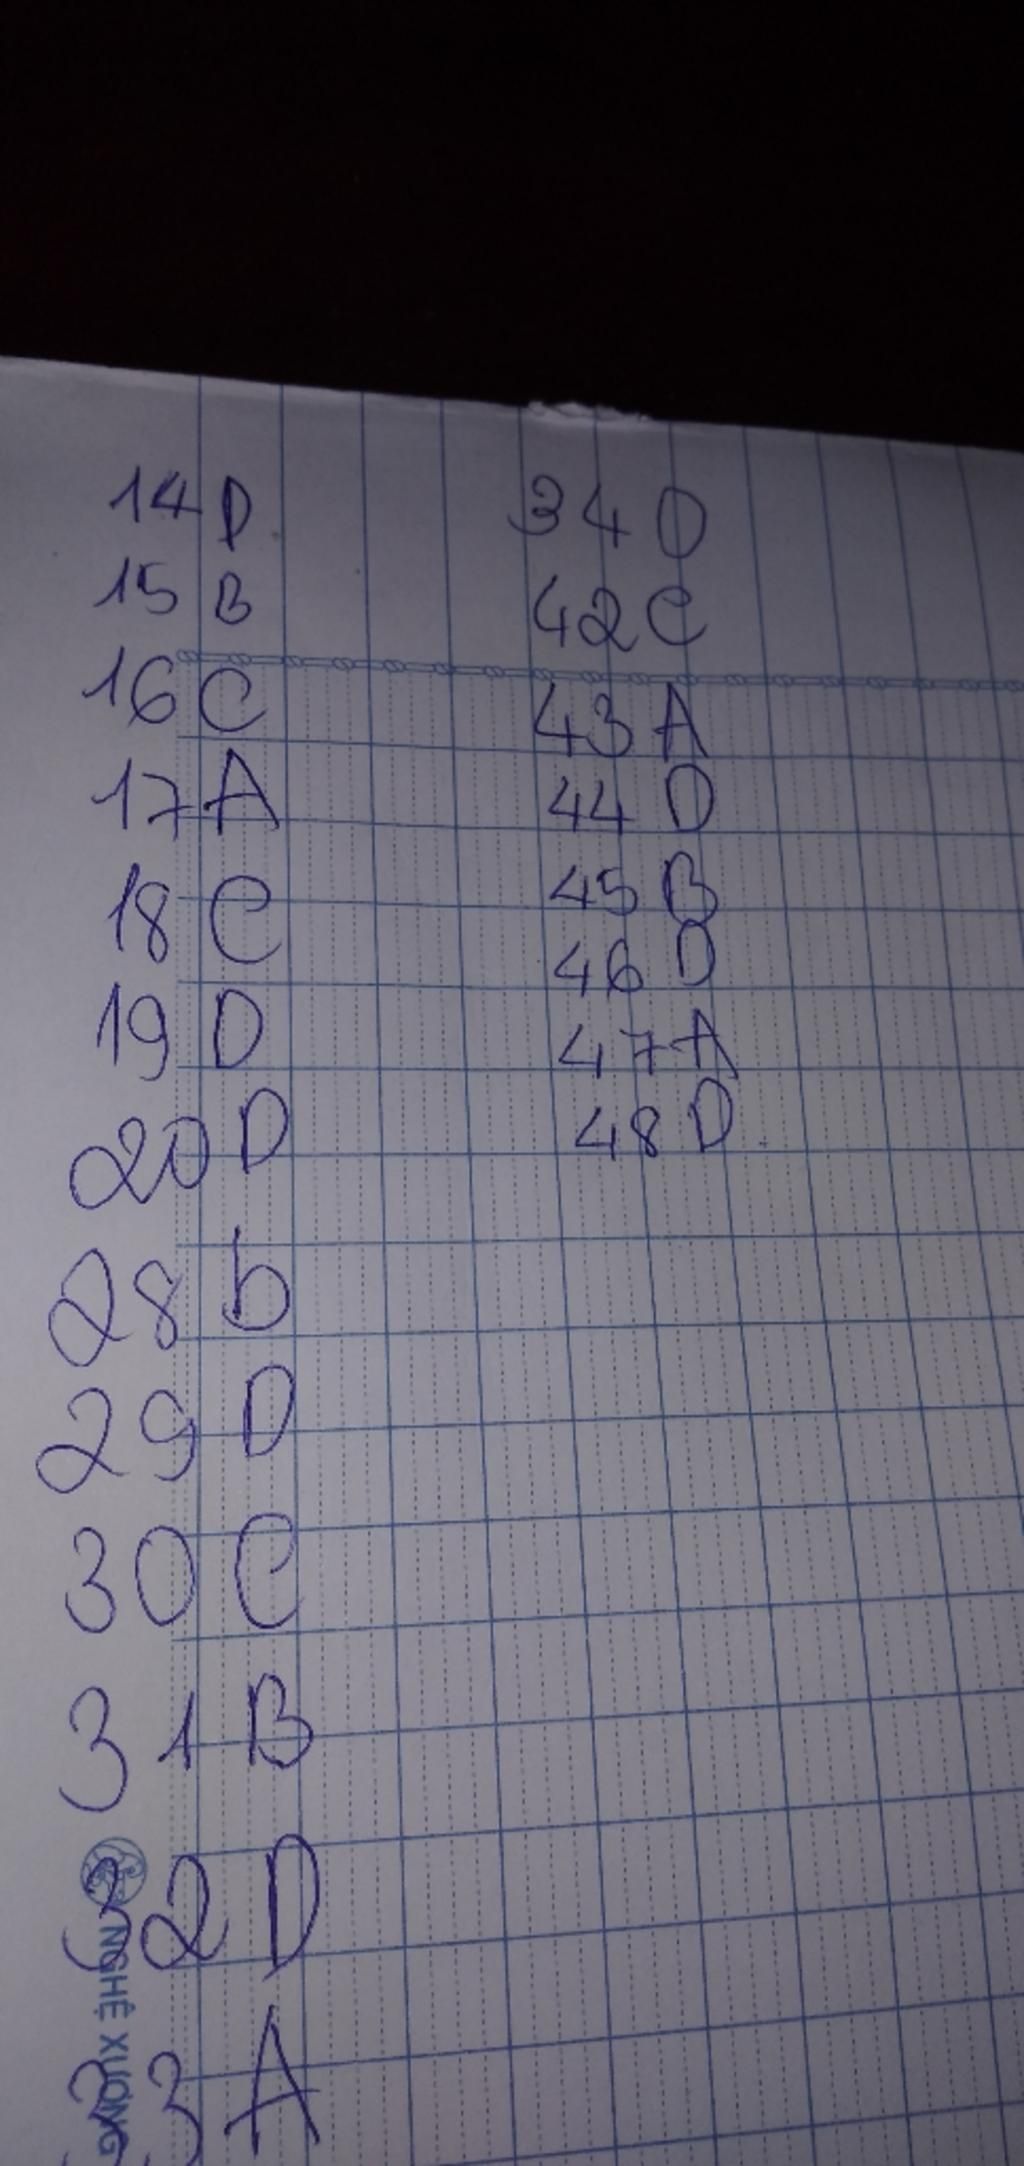 14 D
15 B
16 C
17 A
18 C
19 D
20 D
28 b
29 D
30 C
31 B
32 D
33 A
34 D
42 C
43 A
44 D
45 B
46 D
47 A
48 D
NGHỆ XƯƠNG